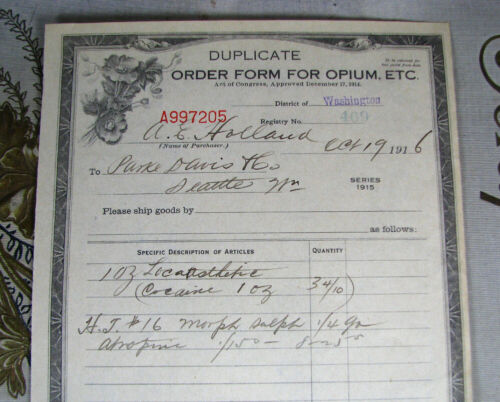 DUPLICATE
ORDER FORM FOR OPIUM, ETC.
Act of Congress, Approved December 17, 1914.
District of Washington
A997205
Registry No. 409
A. E. Holland
(Name of Purchaser.)
Oct 19 1916
To Parke Davis & Co.
Seattle Wn
SERIES
1915
Please ship goods by
as follows:
SPECIFIC DESCRIPTION OF ARTICLES QUANTITY
1 oz
(Cocaine 1 oz) 3 4/10
H. T. #16 Morph Sulph 1/4 gr
Atropine 1/150